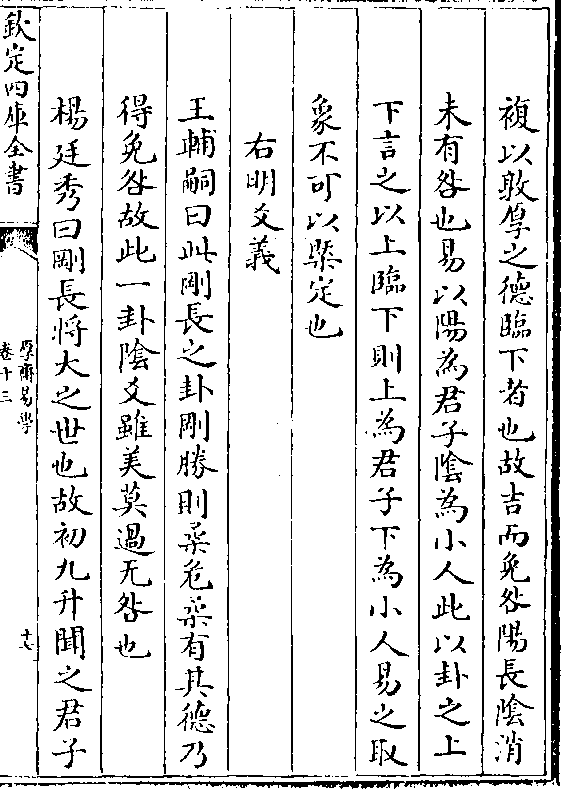 複以敦厚之德臨下者也故吉而免咎陽長陰消
未有咎也易以陽為君子陰為小人此以卦之上
下言之以上臨下則上為君子下為小人易之取
象不可以槩定也
右明爻義
王輔嗣曰此剛長之卦剛勝則柔危柔有其德乃
得免咎故此一卦陰爻雖美莫過无咎也
楊廷秀曰剛長將大之世也故初九升聞之君子
欽定四庫全書
厚齋易學
卷十三
十七